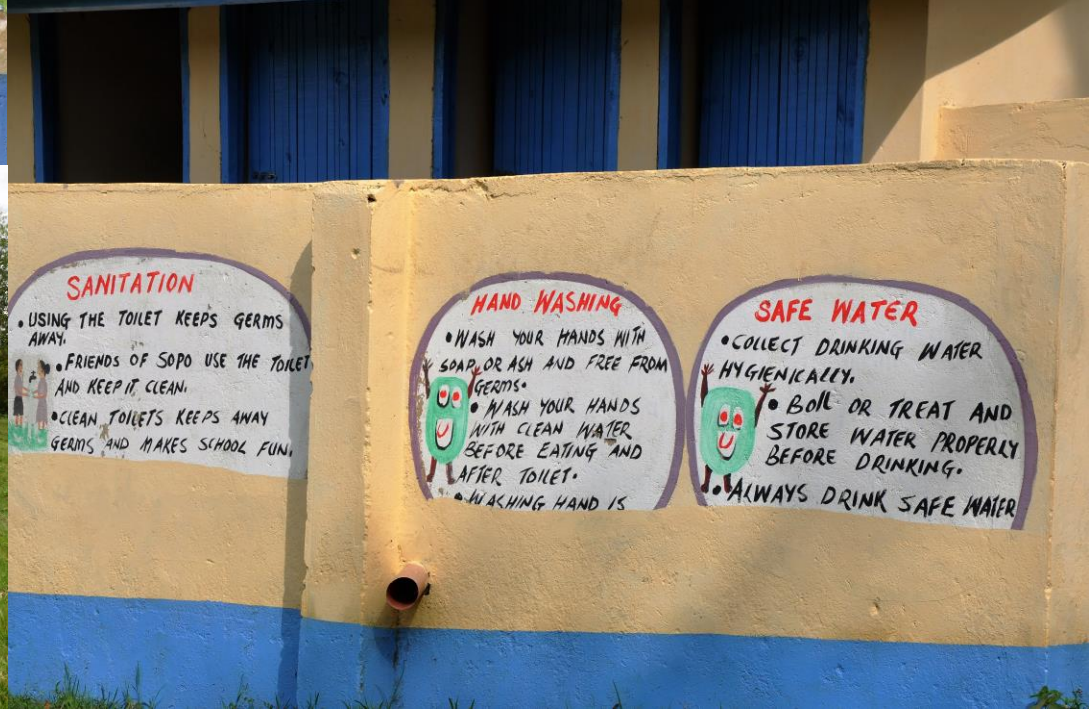 SANITATION
• USING THE TOILET KEEPS GERMS
AWAY.
• FRIENDS OF SOPO USE THE TOILET
AND KEEP IT CLEAN.
• CLEAN TOILETS KEEPS AWAY
GERMS AND MAKES SCHOOL FUN.
HAND WASHING
• WASH YOUR HANDS WITH
SOAP OR ASH AND FREE FROM
GERMS.
• WASH YOUR HANDS
WITH CLEAN WATER
BEFORE EATING AND
AFTER TOILET.
• WASHING HAND IS
SAFE WATER
• COLLECT DRINKING WATER
HYGIENICALLY.
• BOIL OR TREAT AND
STORE WATER PROPERLY
BEFORE DRINKING.
• ALWAYS DRINK SAFE WATER